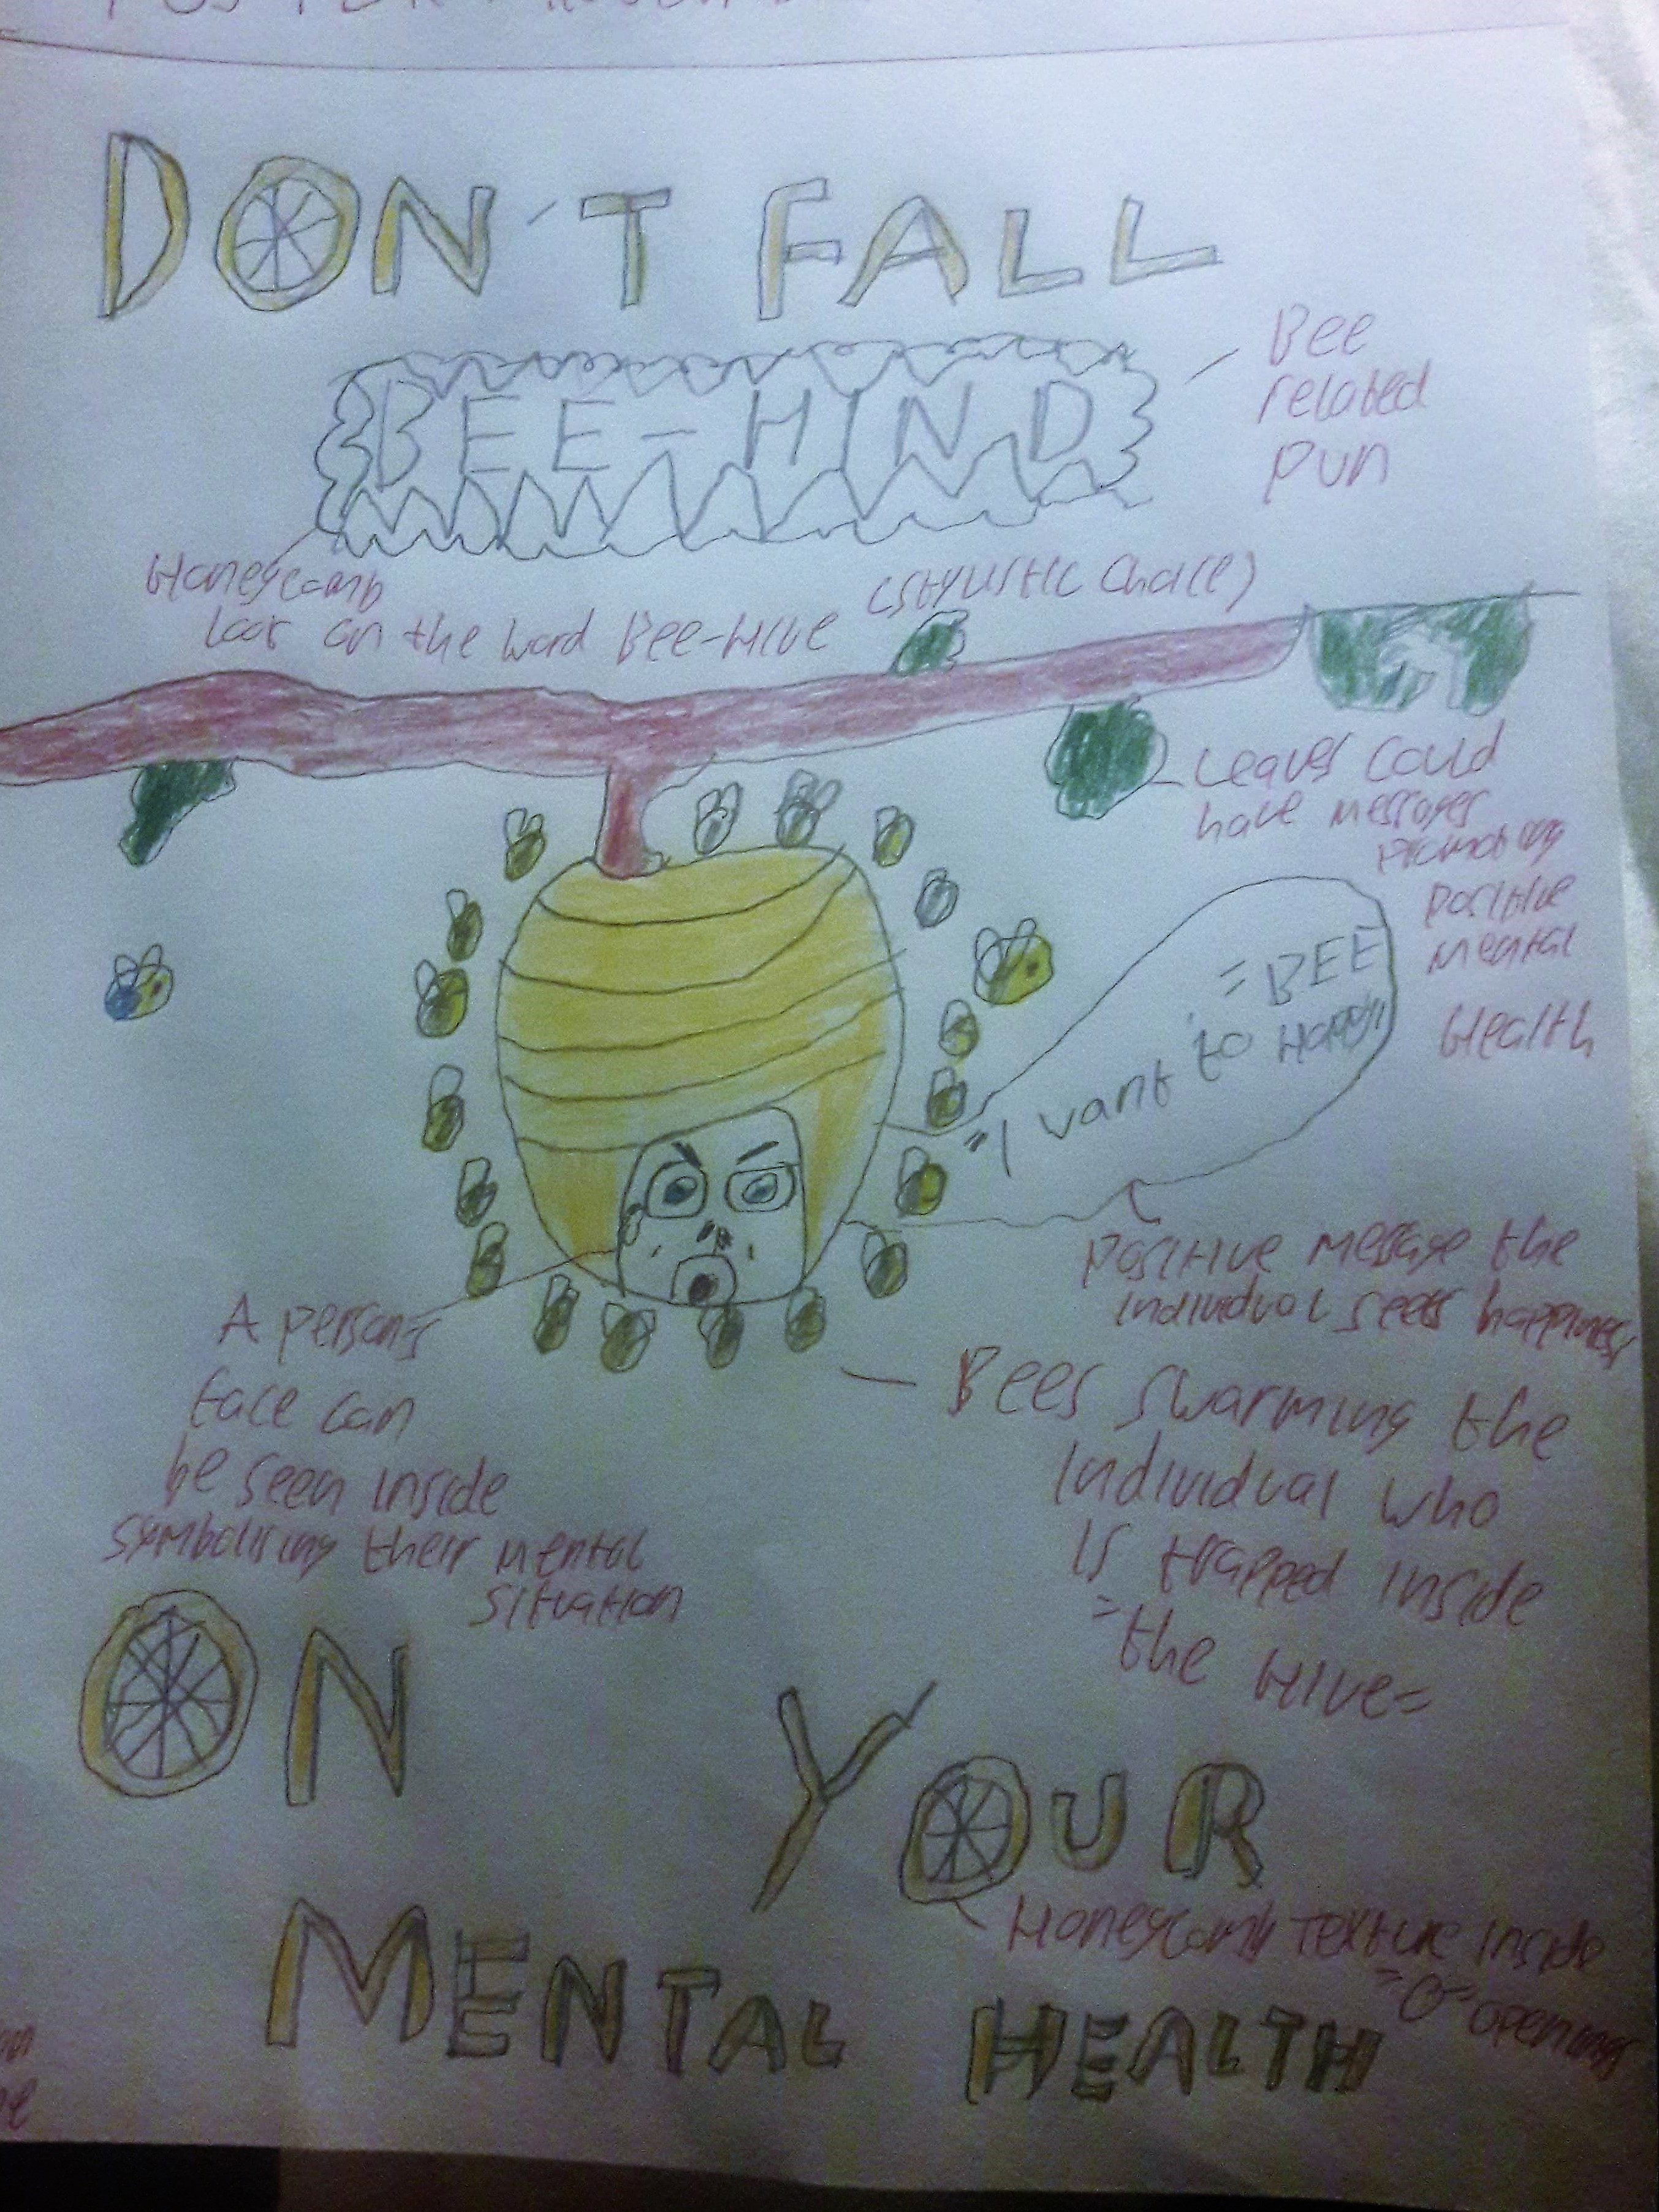 DON'T FALL
BEE-HIND
Bee
related
pun
Honeycomb
look on the word Bee-Hive (stylistic choice)
Leaves could
have messages
promoting
positive
mental
Health
"BEE"
"I want to Happy"
Positive message the
individual seeks happiness
A person's
face can
be seen inside
symbolising their mental
situation
Bees swarming the
individual who
is trapped inside
"the Hive"
ON YOUR
Honeycomb Texture inside
"O" openings
MENTAL HEALTH